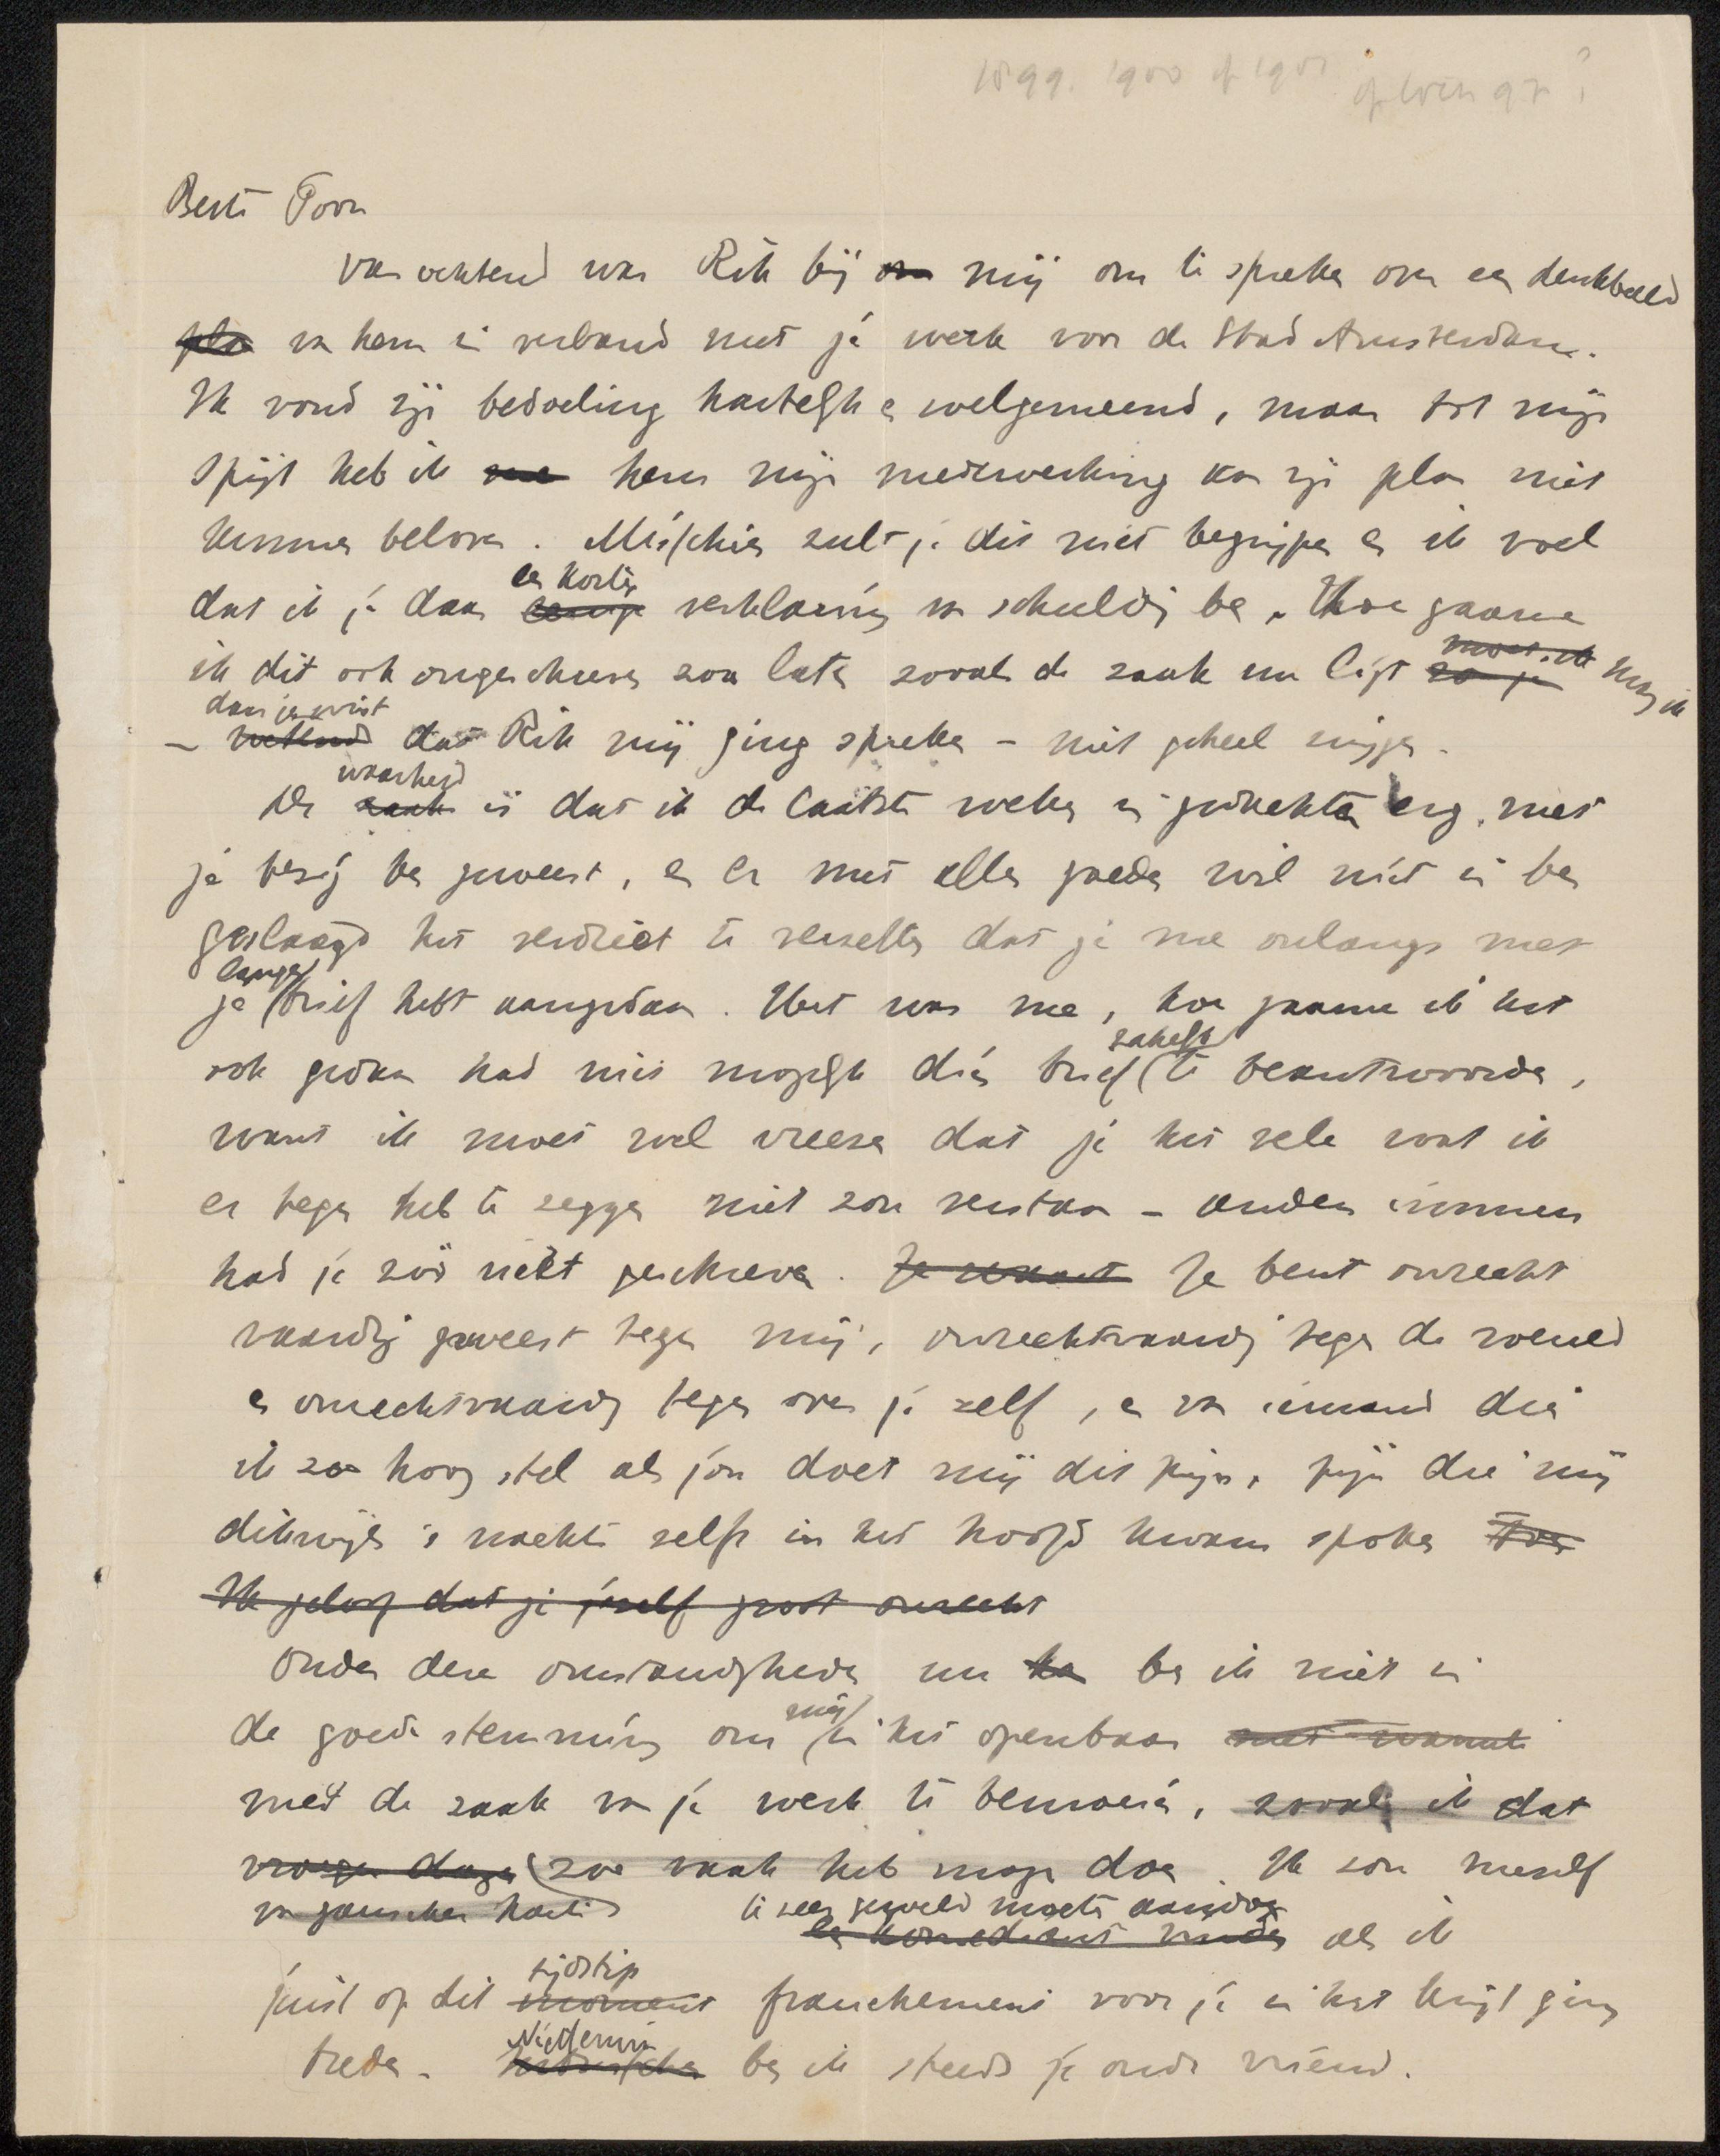 1899. 1900 of 1901
Beste Toon
van ochtend was Rik bij om mij om te spreken over een denkbeeld
plan van hem in verband met je werk voor de Stad Amsterdam.
Ik vond zijn bedoeling hartelijk en welgemeend, maar tot mijn
spijt heb ik hem mijn medewerking aan zijn plan niet
kunnen beloven. Misschien zult je dit niet begrijpen en ik voel
dat ik je daar een korte verklaring van schuldig ben. Hoe gaarne
ik dit ook ongeschreven zou laten zooals de zaak nu ligt moet ik mag ik
daar je wist
– wetend dat Rik mij ging spreken – niet geheel zwijgen.
waarheid
De zaak is dat ik de laatste weken in gedachten erg met
je bezig ben geweest, en er met allen goeden wil niet in ben
geslaagd het verdriet te verzetten dat je me onlangs met
je langen brief hebt aangedaan. Het was me, hoe gaarne ik het
ook gedaan had niet mogelijk dien brief zakelijk te beantwoorden,
want ik moet wel vreezen dat je het vele wat ik
er tegen heb te zeggen niet zou verstaan – anders immers
had je zóó niet geschreven. Je bent onrecht
vaardig geweest tegen mij, onrechtvaardig tegen de wereld
en onrechtvaardig tegenover je zelf, en van iemand die
ik zoo hoog stel als jou doet mij dit pijn, pijn die mij
dikwijls 's nachts zelfs in het hoofd kwam spoken
Ik geloof dat je jezelf groot onrecht
Onder deze omstandigheden nu ben ik niet in
de goede stemming om mij in het openbaar
met de zaak van je werk te bemoeien, zooals ik dat
vroeger dagen zoo vaak heb mogen doen. Ik zou mezelf
van ganscher harte te zeer geweld moeten aandoen
een komediant vinden als ik
juist op dit tijdstip moment franchement voor je in het krijt ging
treden. Niettemin ben ik steeds je oude vriend.